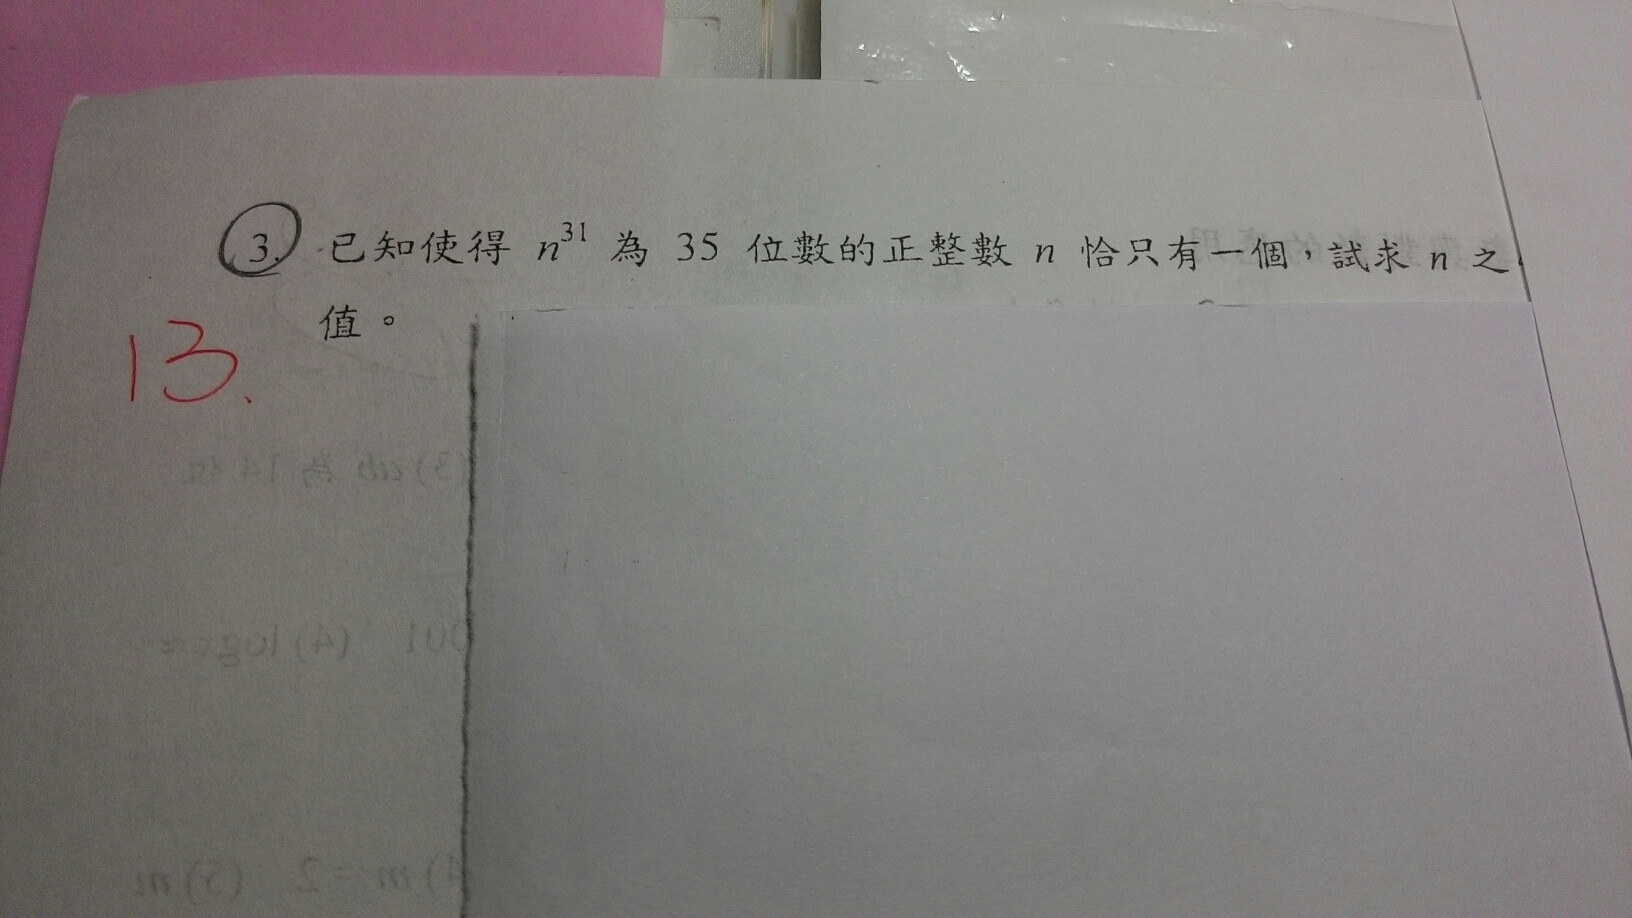 3. 已知使得 n³¹ 為 35 位數的正整數 n 恰只有一個，試求 n 之
值。
13.